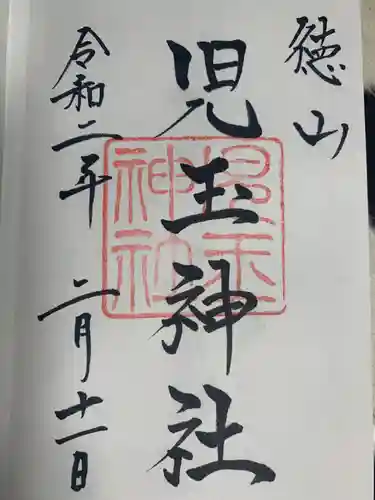 徳山
児玉神社
兒玉神社
令和二年二月十一日